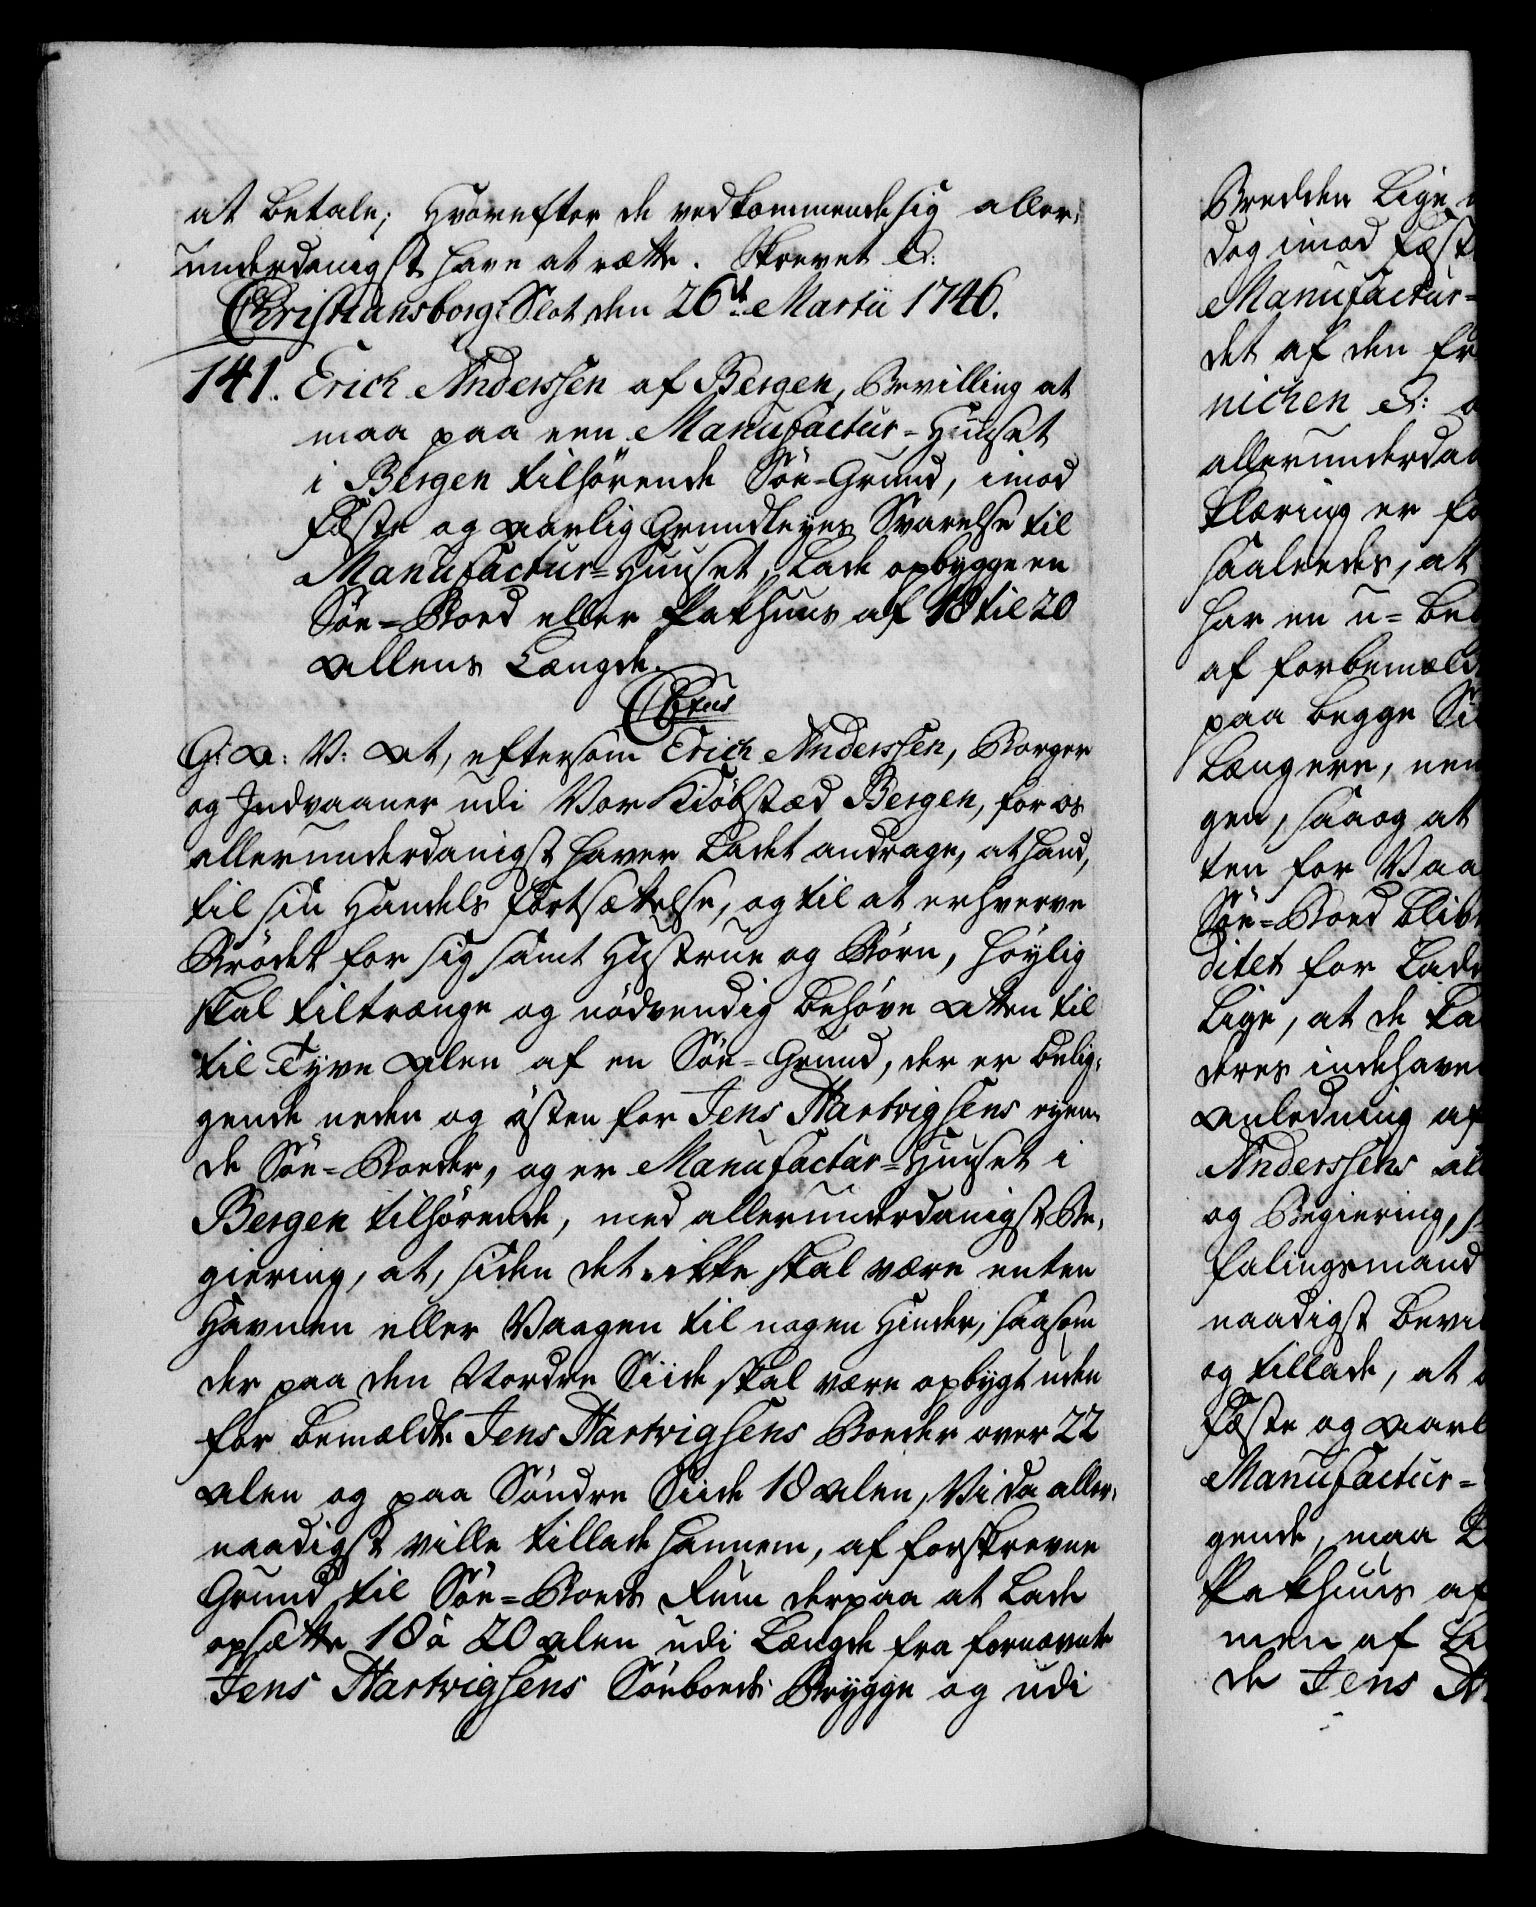 at betale; Hvorefter de vedkommende sig aller-
underdanigst have at rette. Skrevet &:
Christiansborg Slot den 26de Martii 1746.
141. Erich Anderssen af Bergen, Bevilling at
maa paa een Manufactur-Huuset
i Bergen tilhörende Söe-Grund, imod
Fæste og aarlig Grundleyes Svarelse til
Manufactur-Huuset, lade opbygge en
Söe-Boed eller Pakhuus af 18 til 20
Allens Længde.
C6tus
G: A: V: At, eftersom Erich Anderssen, Borger
og Indvaaner udi Vor Kiöbstæd Bergen, for os
allerunderdanigst haver ladet andrage, at hand,
til sin Handels Fortsættelse, og til at erhverve
Brödet for sig samt Hustrue og Börn, höylig
skal tiltrænge og nödvendig behöve Atten til
til Tyve Alen af en Söe-Grund, der er belig-
gende neden og östen for Jens Hartvigsens eyen-
de Söe-Boeder, og er Manufactur-Huuset i
Bergen tilhörende, med allerunderdanigst Be-
giering, at, siden det ikke skal være enten
Havnen eller Vaagen til nogen Hinder, saasom
der paa den Nordre Siide skal være opbygt uden
for bemeldte Jens Hartvigsens Boeder over 22
Alen og paa Söndre Siide 18 Alen, Vi da aller-
naadigst ville tillade hannem, af forskrevne
Grund til Söe-Boeds Rum derpaa at lade
opsætte 18 à 20 Alen udi Længde fra fornævnte
Jens Hartvigsens Söeboeds Brygge og udi
Bredden lige
dog imod Fæst
Manufactur-
det af den
nichen &:
allerunderda
klæring er
saaledes, at
har en u-be
af forbemeld
paa begge Si
Længere,
gen, saa og at
ten for Vaa
Söe-Boed bliv
ditet for
lige, at de
deres indehave
Anledning af
Anderssens
og Begiering,
falingsmand
naadigst bevil
og tillade, at
Fæste og aarl
Manufactur-
gende, maa
Pakhuus af
men af
de Jens